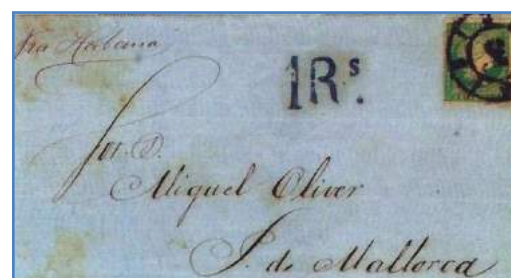 Via Habana
1Rs.
Sor. D.
Miguel Oliver
P. de Mallorca